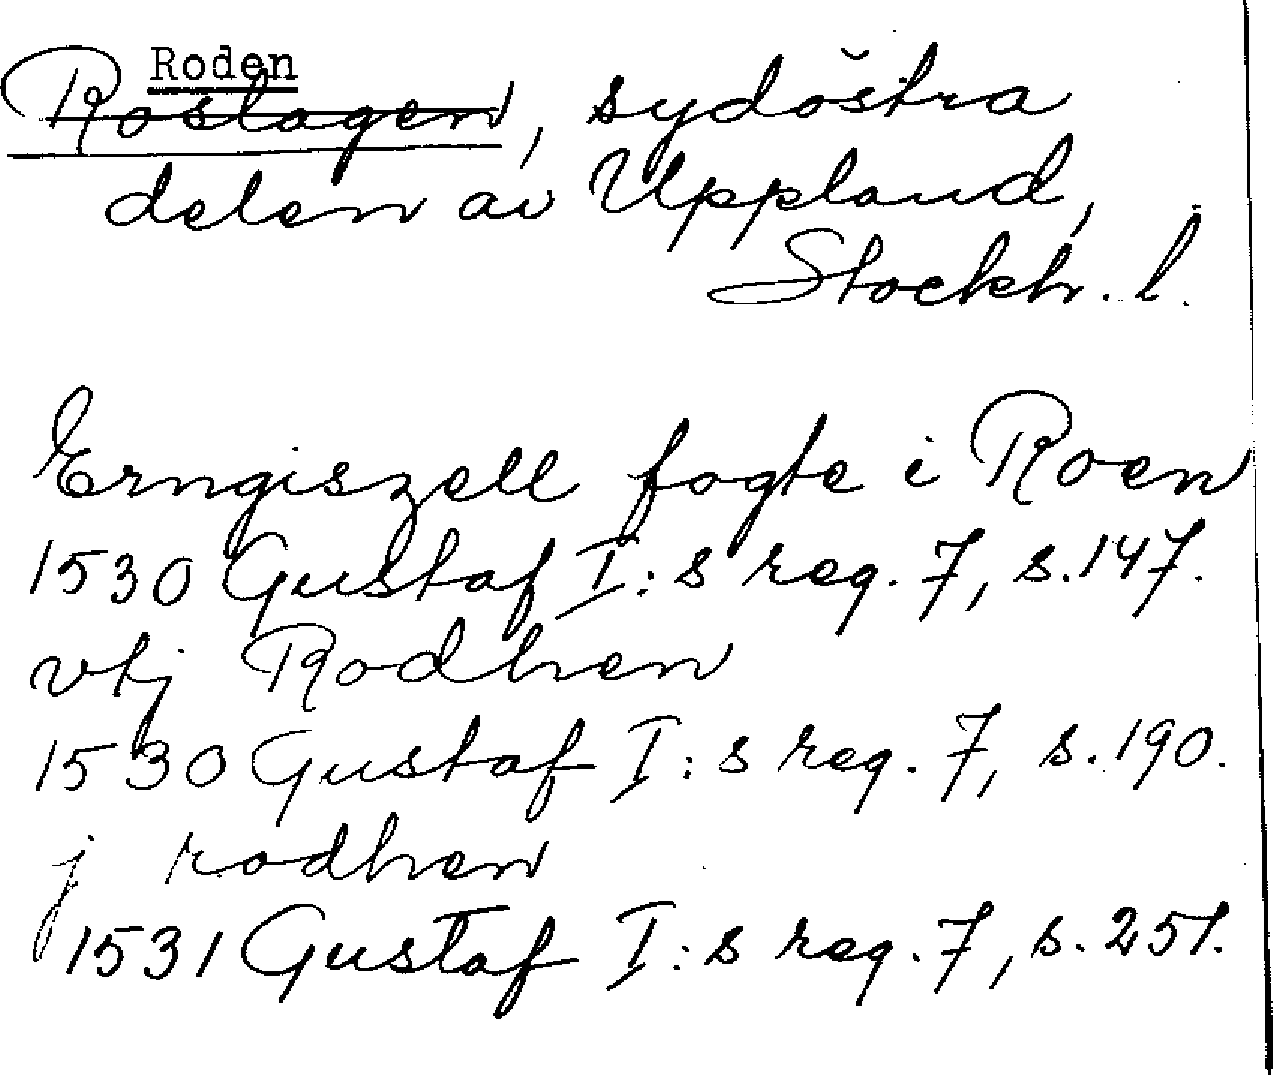 Roden
Roslagen, sydöstra
delen av Uppland,
Stockh. l.
Erngiszell fogte i Roen
1530 Gustaf I:s reg. 7, s. 147.
vtj Rodhen
1530 Gustaf I:s reg. 7, s. 190.
j rodhen
1531 Gustaf I:s reg. 7, s. 251.